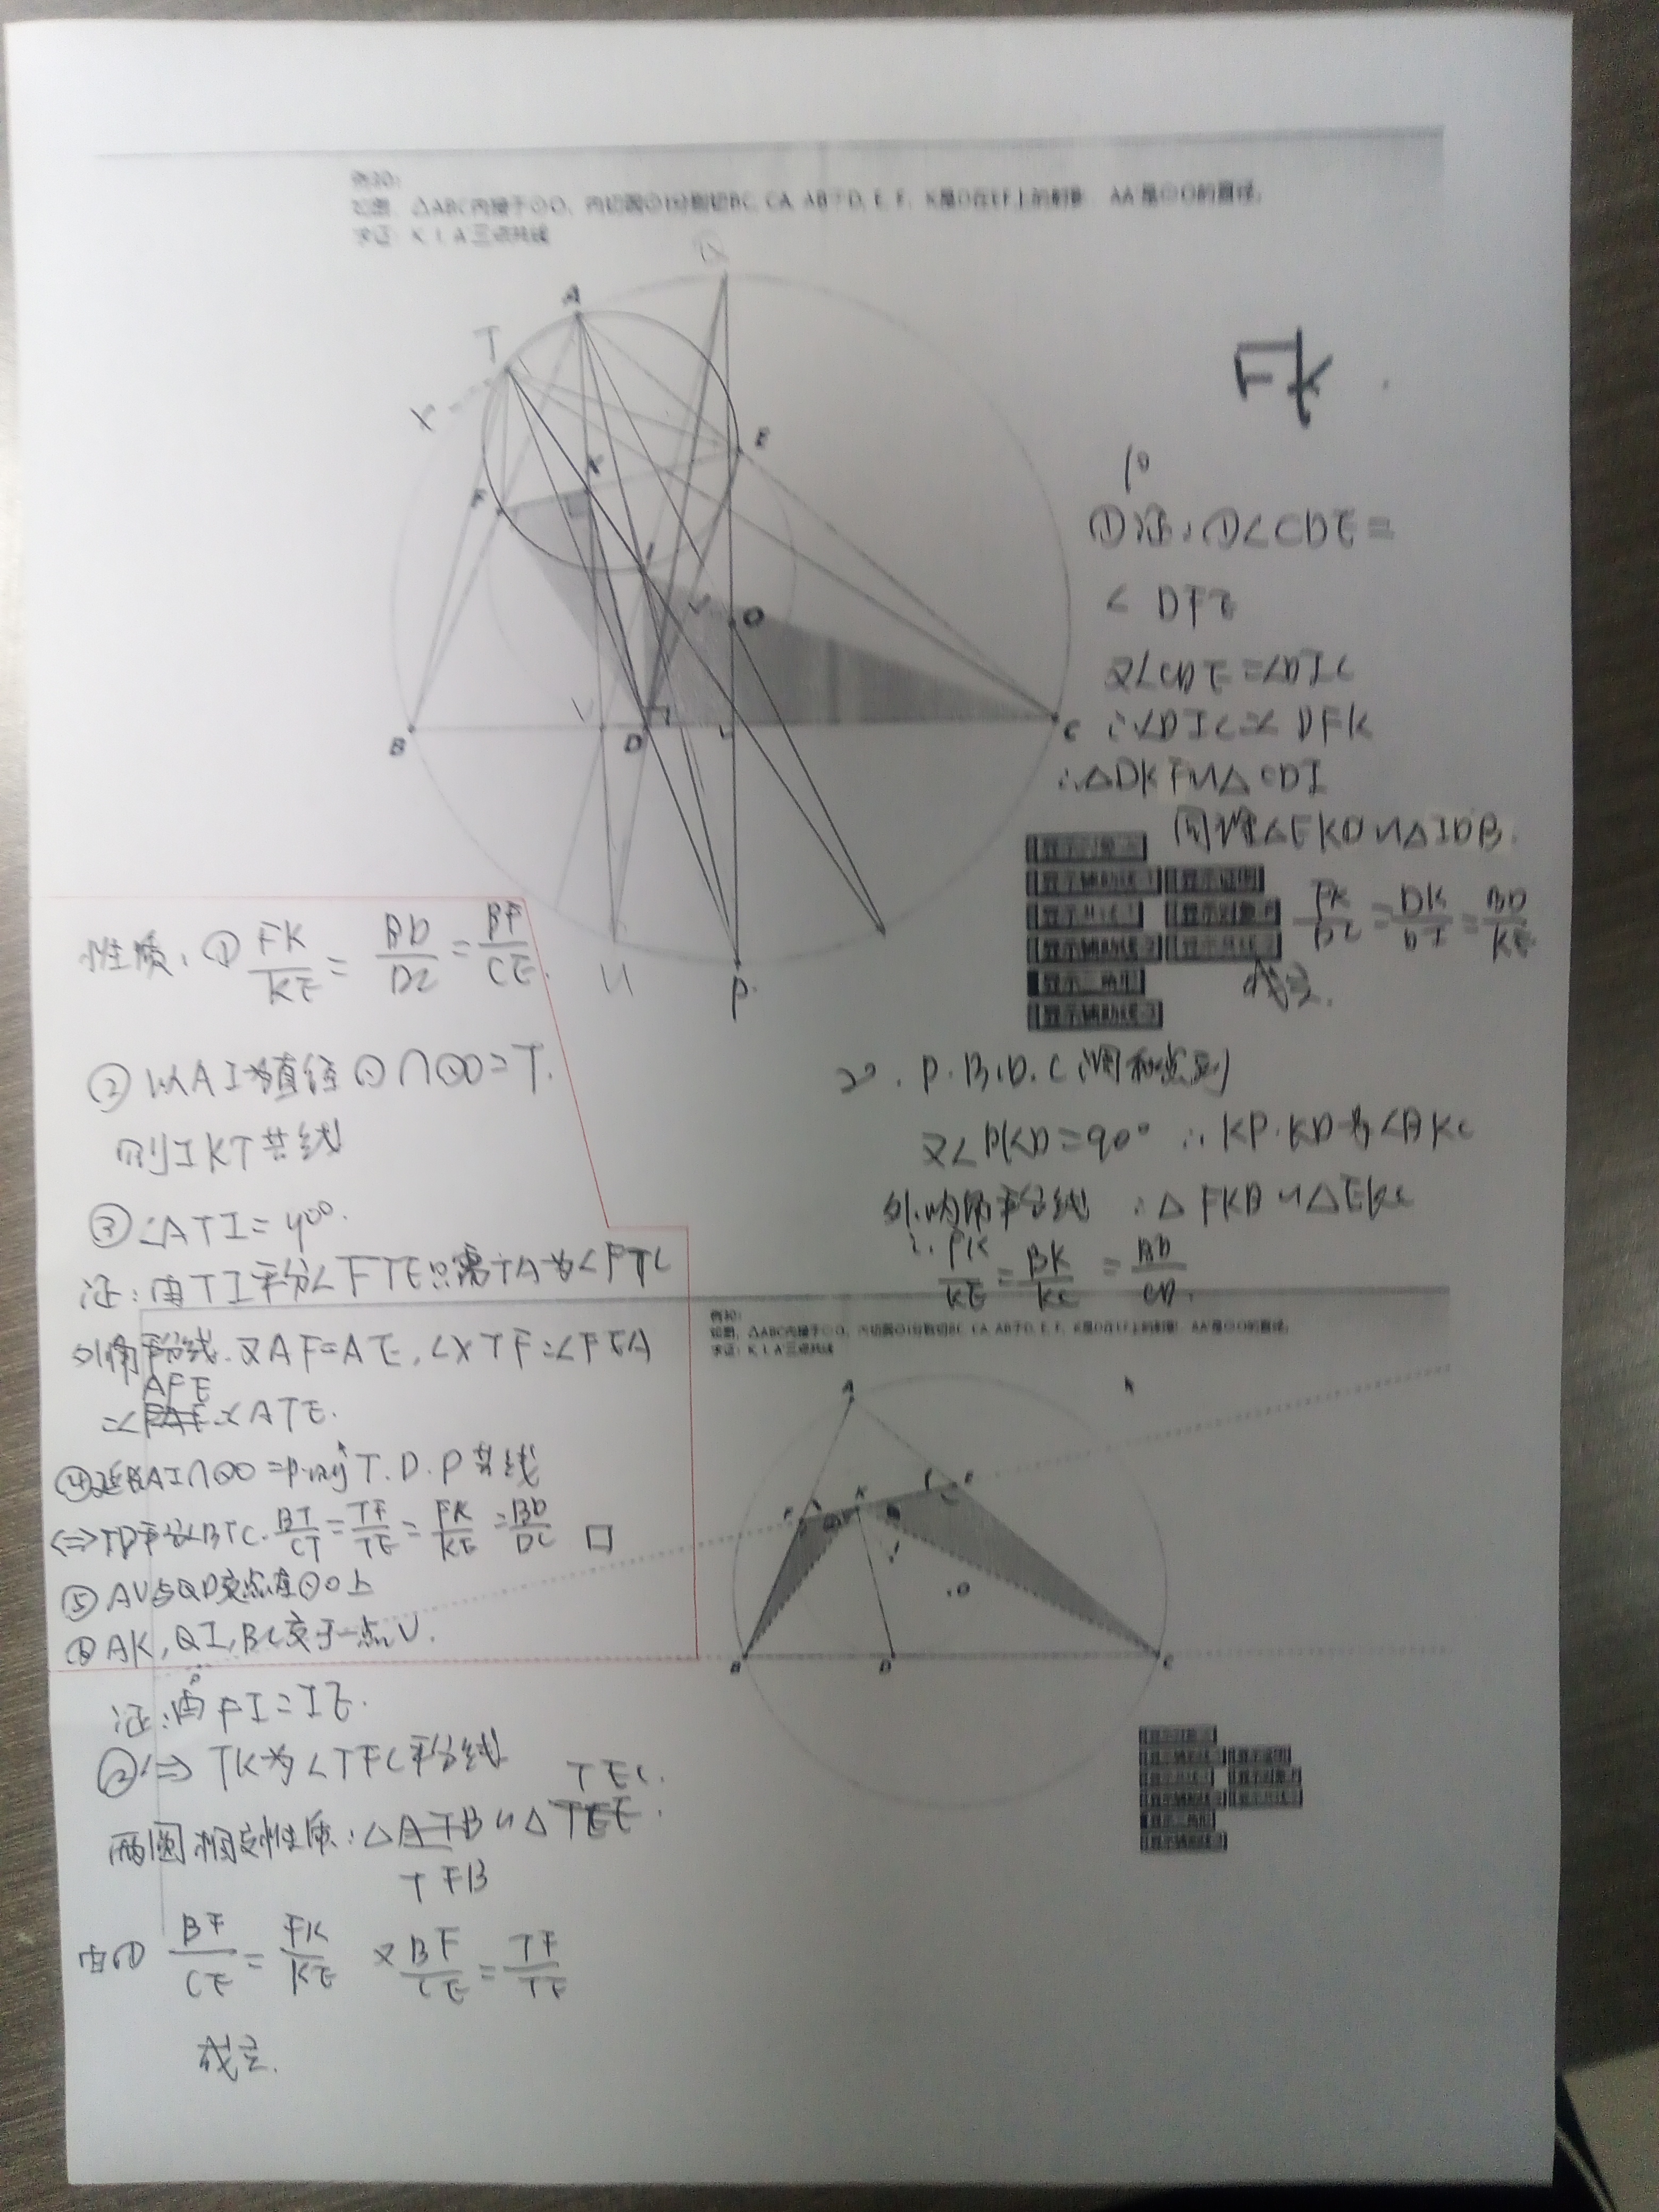 例30:
如图, △ABC内接于⊙O, 内切圆⊙I分别切BC, CA, AB于D, E, F, K是D在EF上的射影, AA'是⊙O的直径。
求证: K, I, A'三点共线
Q
A
T
X
E
K
F
I
O
V
B
D
L
C
U
P
FK
1°
①证:①∠CDE=
∠DFE
又∠CDE=∠DIC
∴∠DIC=∠DFK
∴△DKF∽△CDI
同理△EKD∽△IDB.
FK/DC=DK/DI=BD/KE
成立.
显示辅助线-1 显示证明
显示辅助线-2
显示三角形
显示辅助线-3
2°. P.B.D.C调和点列
又∠PKD=90° ∴KP.KD为∠BKC
外.内角平分线 ∴△FKB∽△EKC
∴FK/KE=BK/KC=BD/CD.
性质:①FK/KE=BD/DC=BF/CE.
②以AI为直径⊙∩⊙O=T.
则IKT共线
③∠ATI=90°.
证:由TI平分∠FTE只需TA为∠FTE
外角平分线.又AF=AE,∠XTF=∠FEA
=∠AFE=∠ATE.
④延长AI∩⊙O=P.则T.D.P共线
⟺TD平分∠BTC.BT/CT=TF/TE=FK/KE=BD/DC □
⑤AV与QD交点在⊙O上
⑥AK,QI,BC交于一点V.
证:由FI=IE.
②⟺TK为∠TFC平分线
TEC.
两圆相交性质:△ATB∽△TEE.
TFB
由① BF/CE=FK/KE 又BF/CE=TF/TE
成立.
例30:
如图, △ABC内接于⊙O, 内切圆⊙I分别切BC, CA, AB于D, E, F, K是D在EF上的射影, AA'是⊙O的直径。
求证: K, I, A'三点共线
A
F
K
E
O
P
B
D
C